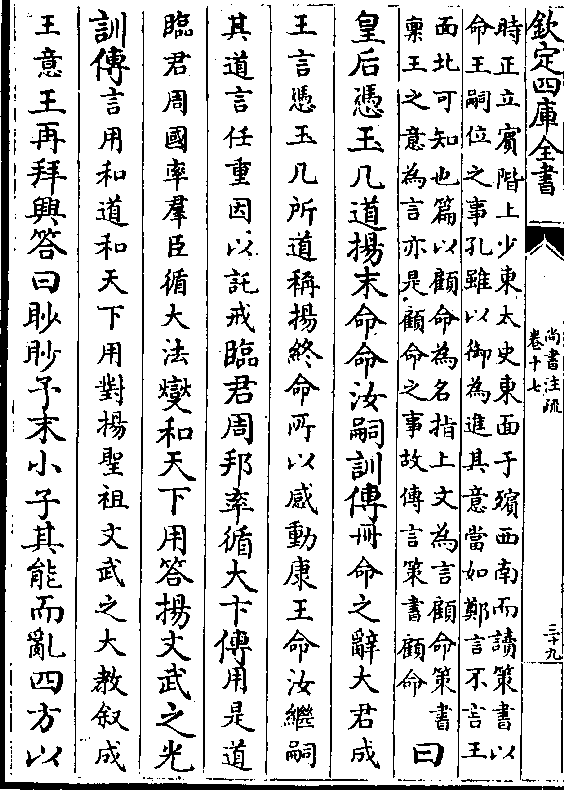 欽定四庫全書
尚書注疏
卷十七
三十九
時正立賓階上少東太史東面于殯西南而讀策書以
命王嗣位之事孔雖以御為進其意當如鄭言不言王
面北可知也篇以顧命為名指上文為言顧命策書
稟王之意為言亦是顧命之事故傳言策書顧命曰
皇后憑玉几道揚末命命汝嗣訓傳冊命之辭大君成
王言憑玉几所道稱揚終命所以感動康王命汝繼嗣
其道言任重因以託戒臨君周邦率循大卞傳用是道
臨君周國率羣臣循大法燮和天下用答揚文武之光
訓傳言用和道和天下用對揚聖祖文武之大教叙成
王意王再拜興答曰眇眇予末小子其能而亂四方以